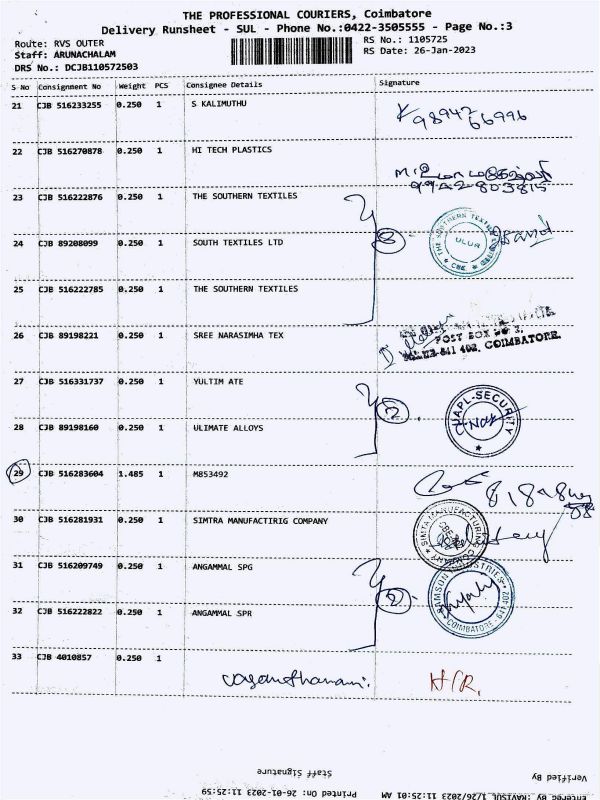 THE PROFESSIONAL COURIERS, Coimbatore
Delivery Runsheet - SUL - Phone No.:0422-3505555 - Page No.:3
Route: RVS OUTER RS No.: 1105725
Staff: ARUNACHALAM RS Date: 26-Jan-2023
DRS No.: DCJB110572503
S No Consignment No Weight PCS Consignee Details Signature
21 CJB 516233255 0.250 1 S KALIMUTHU
98942 66996
22 CJB 516270878 0.250 1 HI TECH PLASTICS
23 CJB 516222876 0.250 1 THE SOUTHERN TEXTILES
THE SOUTHERN TEXTILES
ULUR
CBE
24 CJB 89208099 0.250 1 SOUTH TEXTILES LTD
25 CJB 516222785 0.250 1 THE SOUTHERN TEXTILES
26 CJB 89198221 0.250 1 SREE NARASIMHA TEX
POST BOX NO 3,
COIMBATORE.
27 CJB 516331737 0.250 1 YULTIM ATE
2
28 CJB 89198160 0.250 1 ULIMATE ALLOYS
UAPL-SECURITY
29 CJB 516283604 1.485 1 M853492
30 CJB 516281931 0.250 1 SIMTRA MANUFACTIRIG COMPANY
SIMTA MANUFACTURING COMPANY
31 CJB 516209749 0.250 1 ANGAMMAL SPG
INDUSTRIES
COIMBATORE
32 CJB 516222822 0.250 1 ANGAMMAL SPR
33 CJB 4010857 0.250 1
Vasanthamani. H/R.
Staff Signature Verified By
Printed On: 26-01-2023 11:25:59 1/26/2023 11:25:01 AM